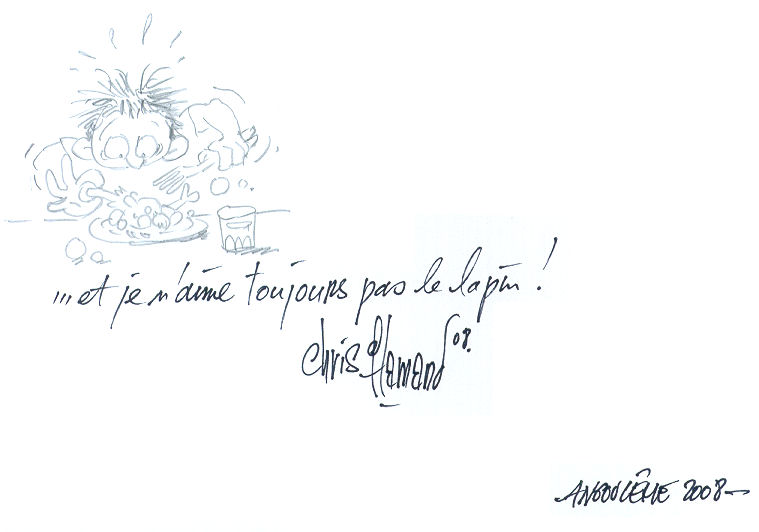 ...et je n'aime toujours pas le lapin !
Chris Flamand 08.
ANGOULÊME 2008